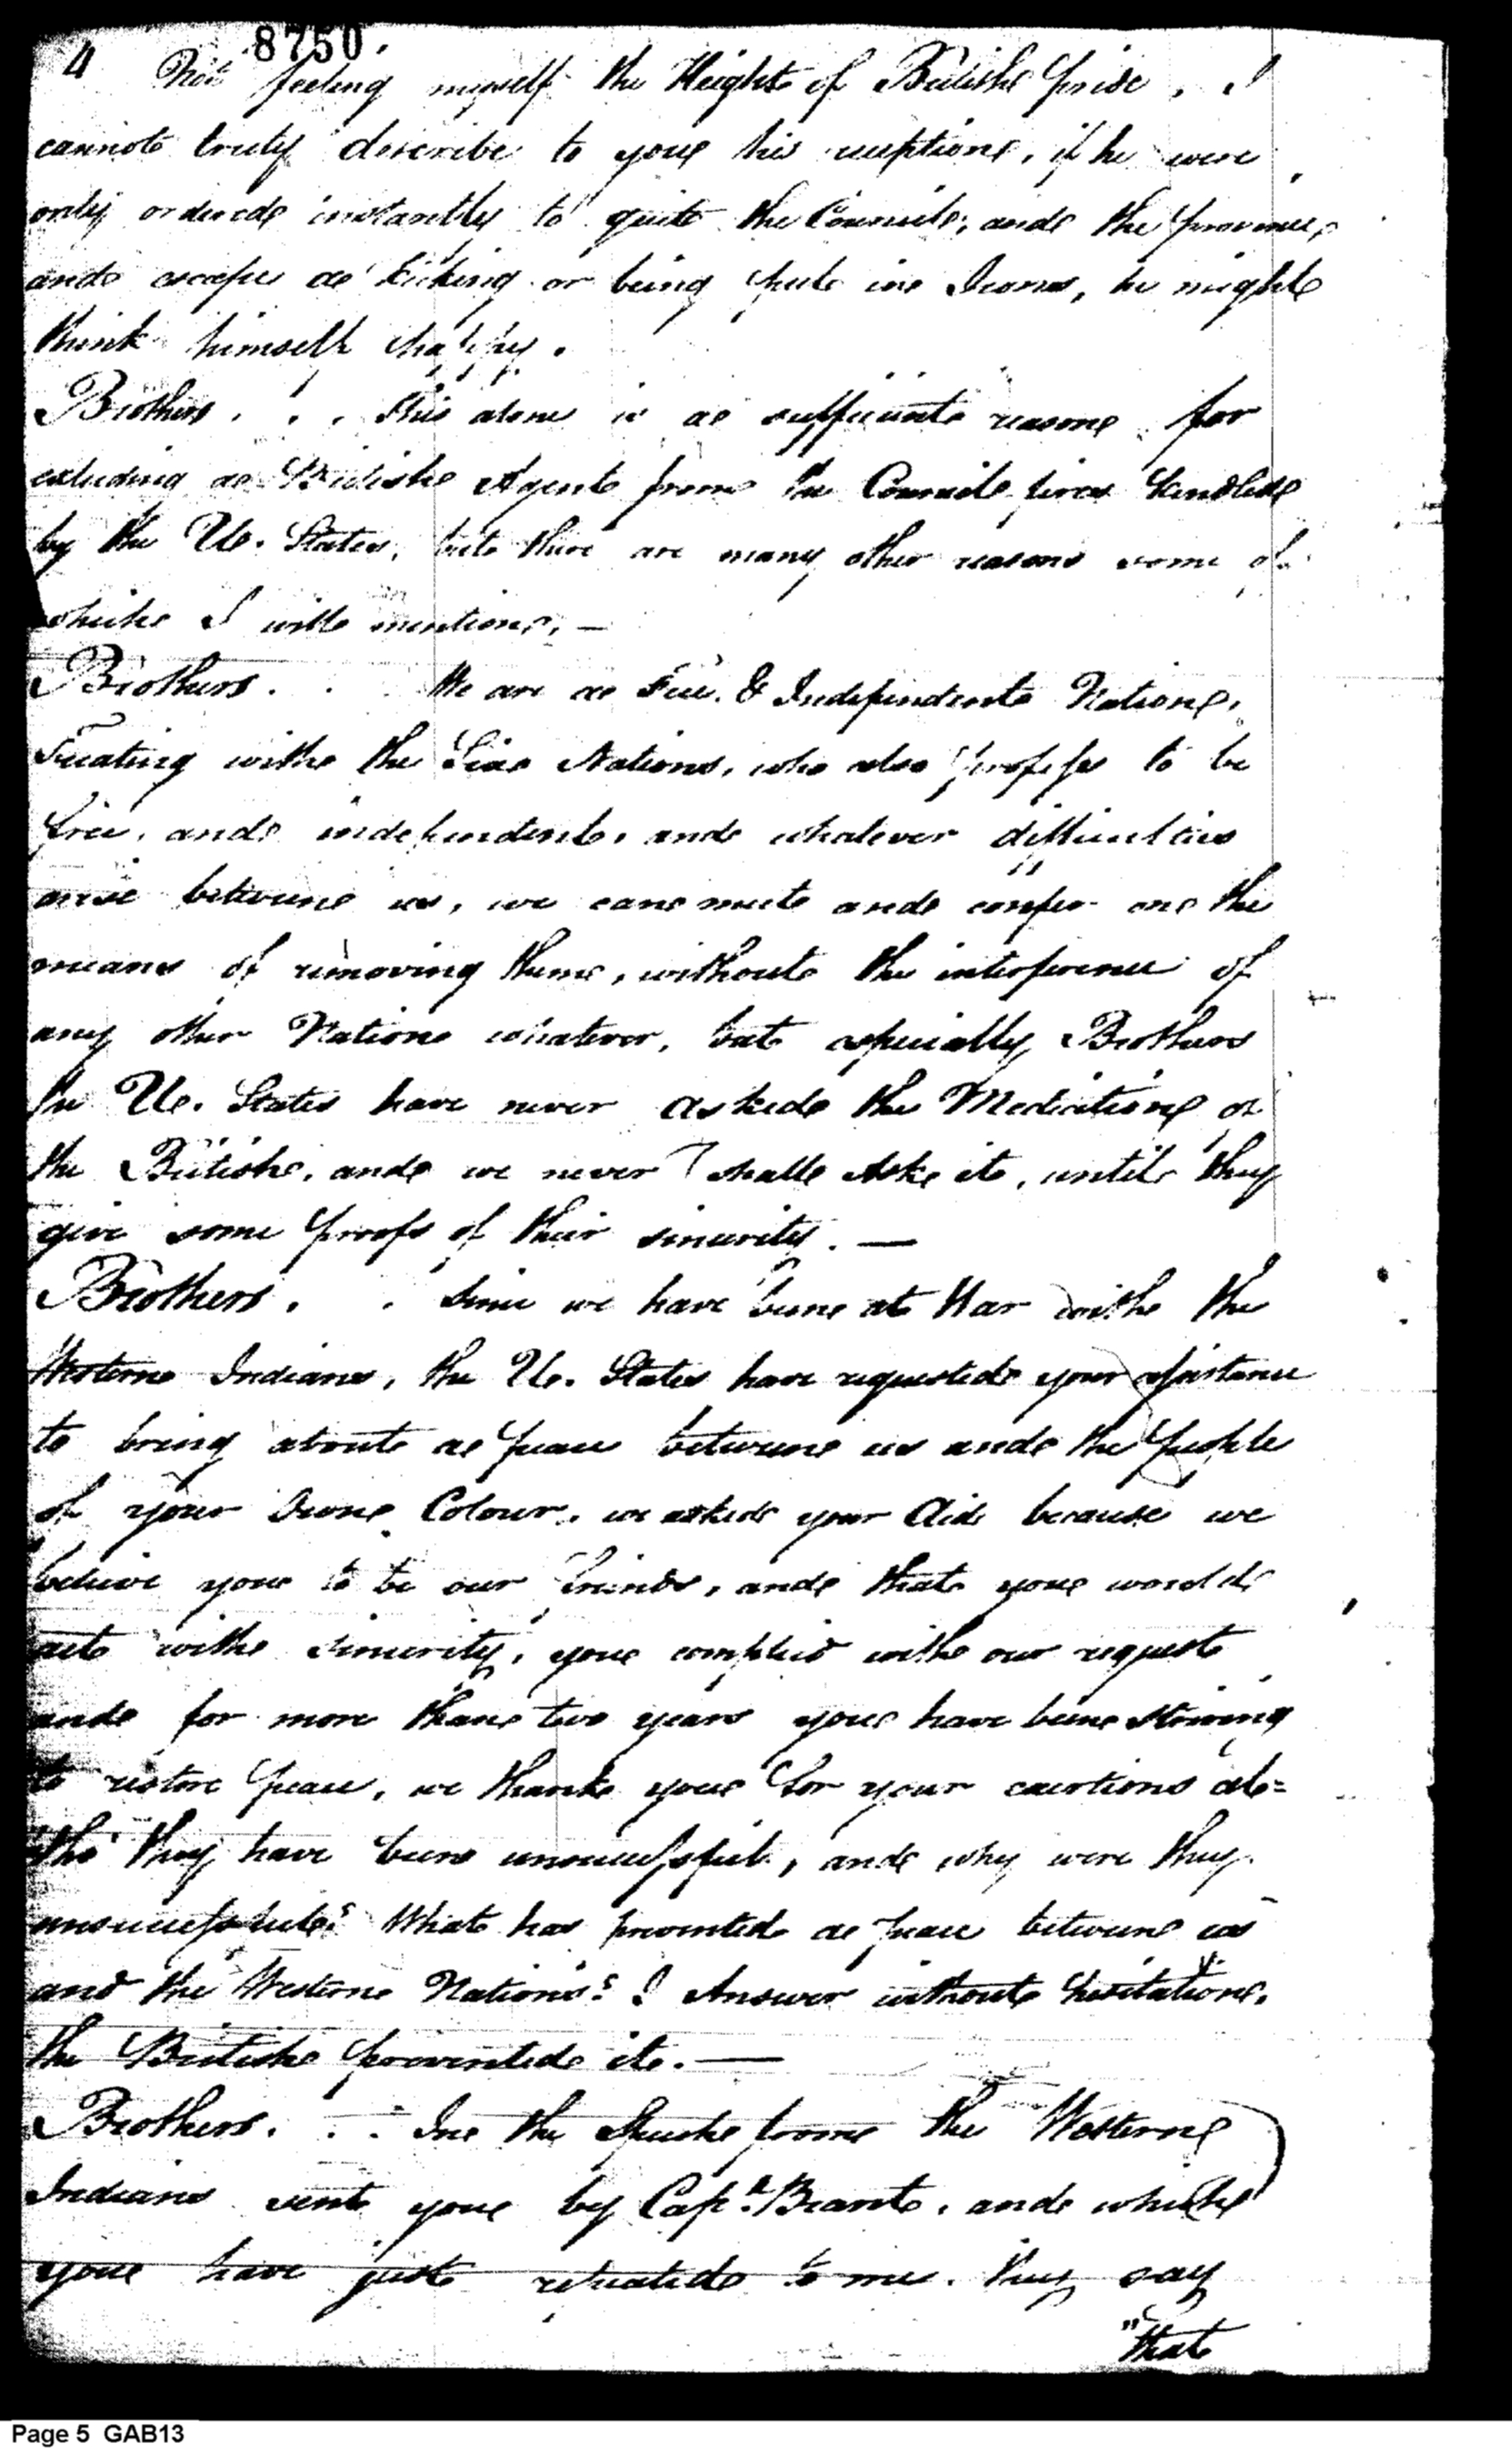 4 8750.
Not feeling myself the Height of British pride, I
cannot truly describe to you his reception, if he were
only ordered instantly to quit the Council, and the province,
and escape a kicking or being put in Irons, he might
think himself happy.
Brothers . . . this alone is a sufficient reason for
excluding a British Agent from the Council fires kindled
by the U. States, but there are many other reasons some of
which I will mention. —
Brothers . . We are a Free & Independent Nation,
Treating with the Six Nations, who also profess to be
free, and independent, and whatever difficulties
arise between us, we can meet and confer on the
means of removing them, without the interference of
any other Nation whatever, but especially Brothers
the U. States have never asked the Mediation of
the British, and we never shall Ask it, until they
give some proofs of their sincerity. —
Brothers . . Since we have been at War with the
Western Indians, the U. States have requested your assistance
to bring about a peace between us and the people
of your own Colour, we asked your Aid because we
believe you to be our friends, and that you would
act with sincerity, you complied with our request
and for more than two years you have been striving
to restore peace, we thank you for your exertions al=
tho' they have been unsuccessful, and why were they
unsuccessful? What has prevented a peace between us
and the Western Nations? I Answer without hesitation,
the British prevented it. —
Brothers . . . In the Speech from the Western
Indians sent you by Capt. Brant, and which
you have just repeated to me. they say
"that
Page 5 GAB13